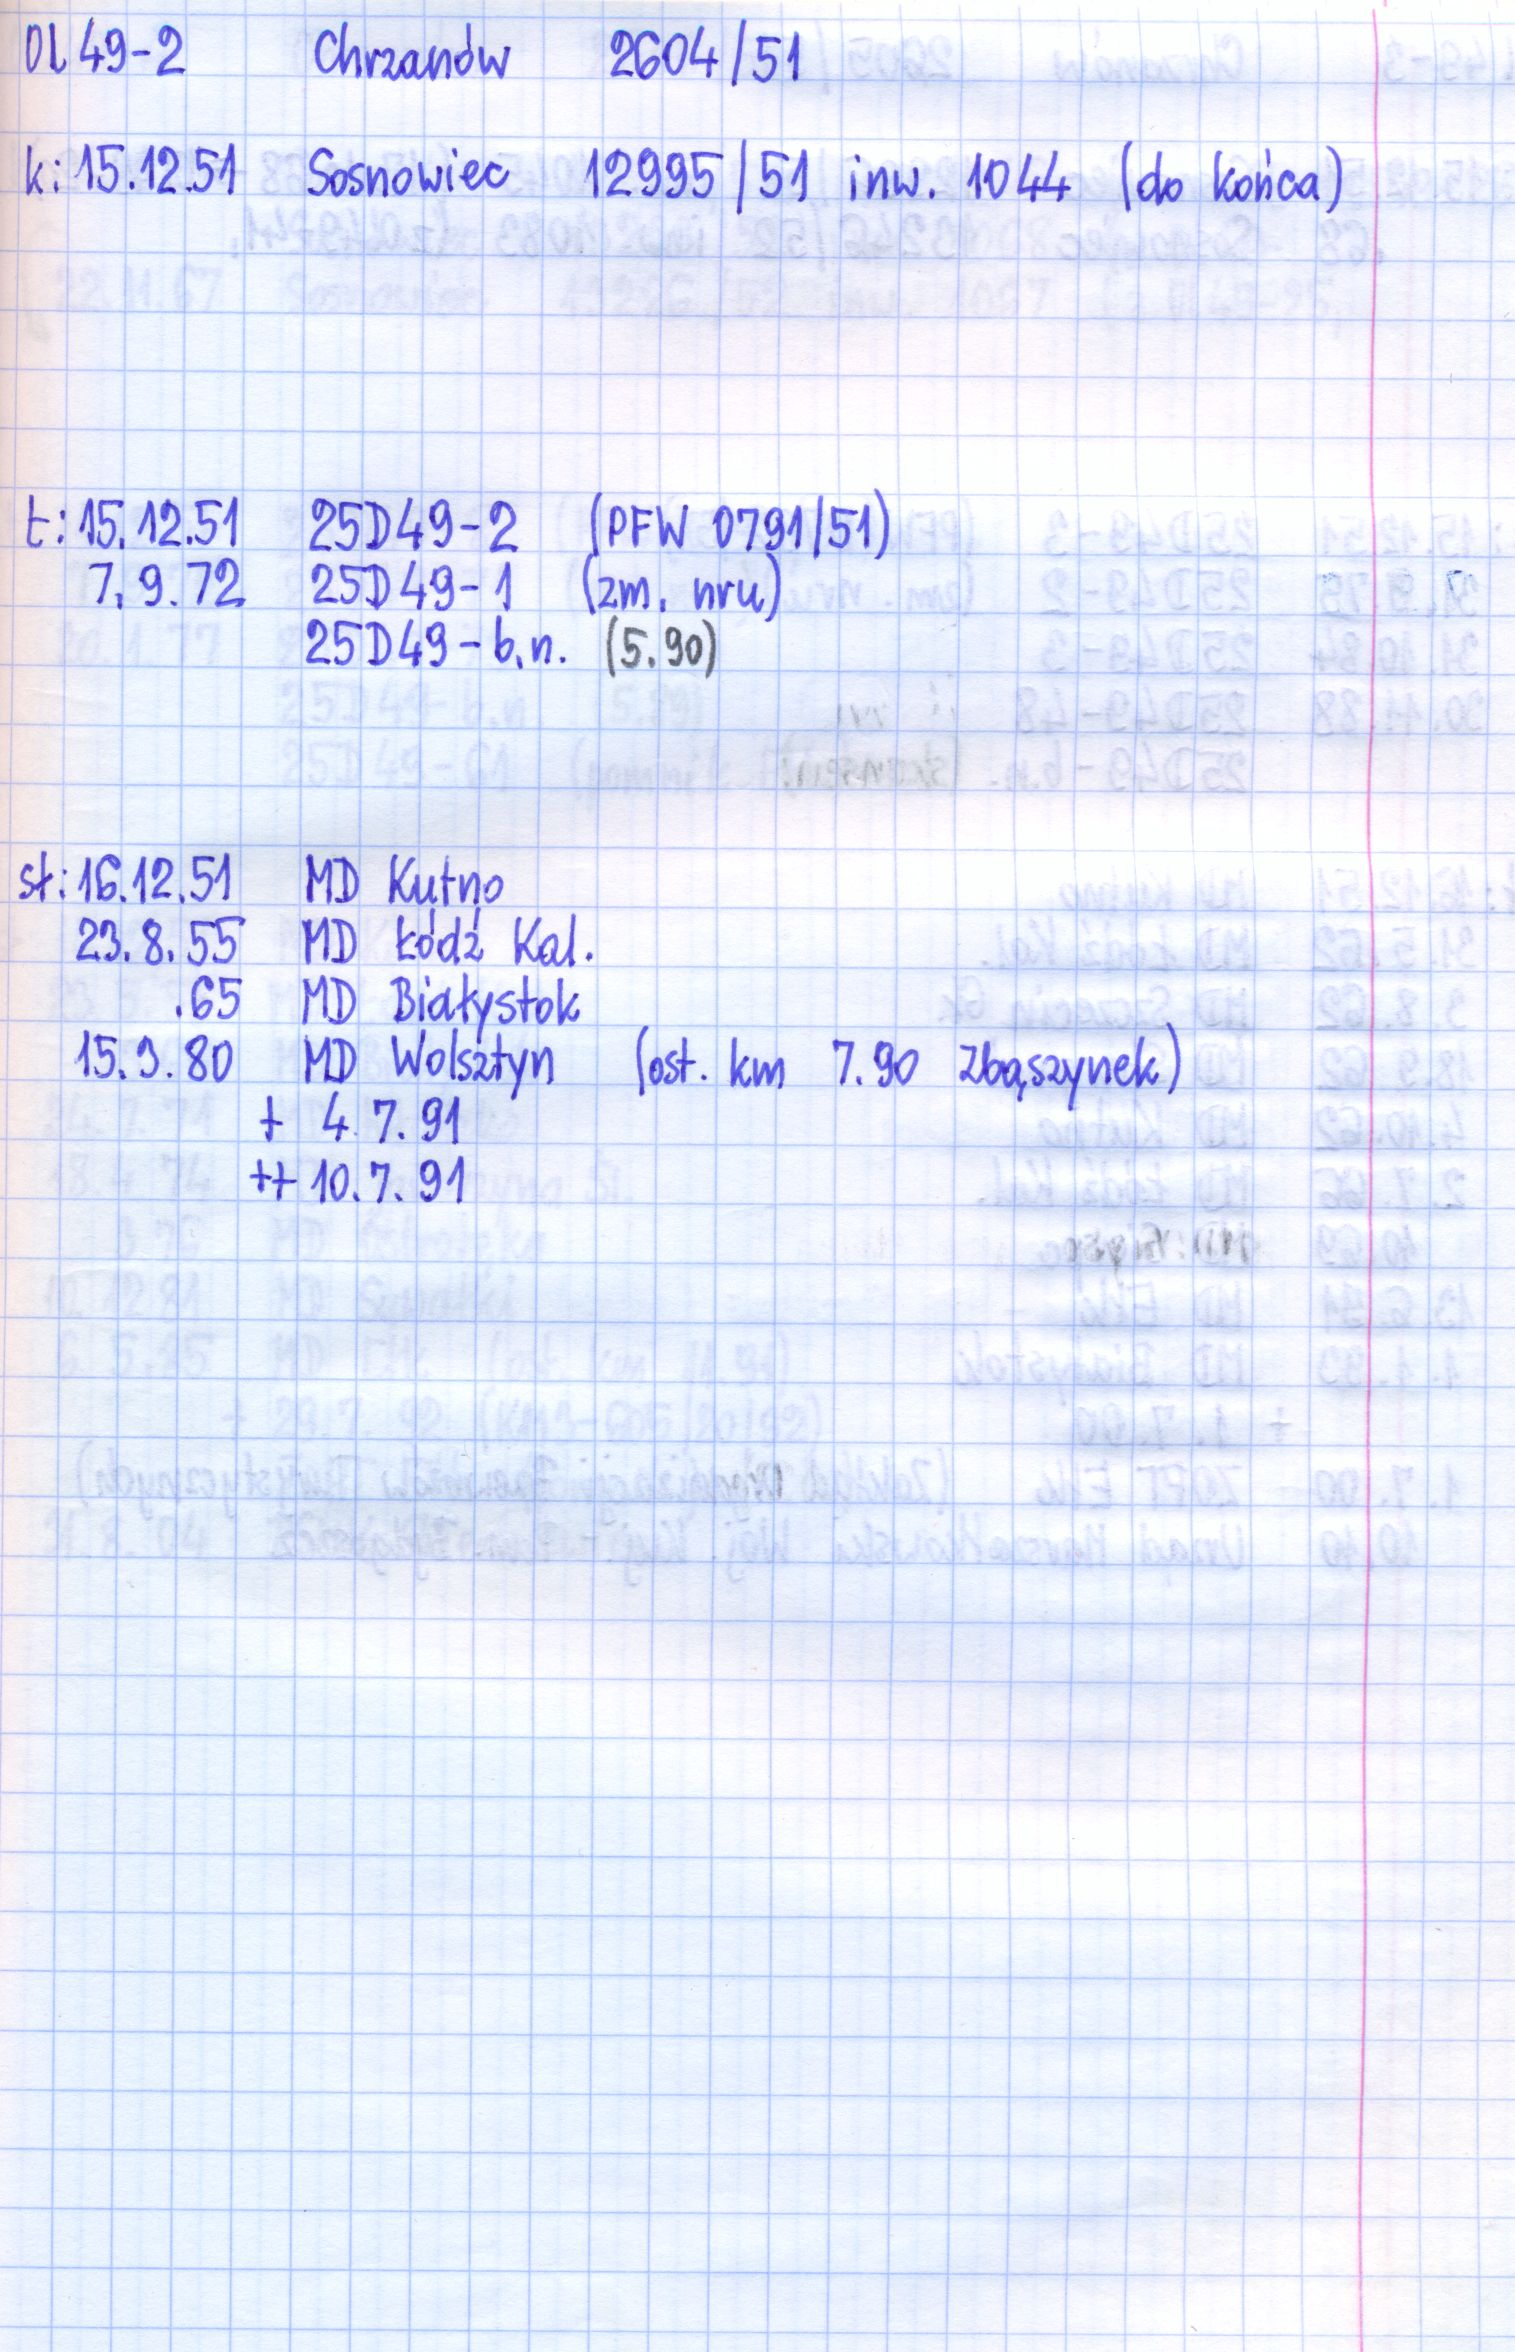 Ol 49-2 Chrzanów 2604/51
k: 15.12.51 Sosnowiec 12995/51 inw. 1044 (do końca)
t: 15.12.51 25D49-2 (PFW 0791/51)
7.9.72 25D49-1 (zm. nru)
25D49-b.n. (5.90)
st: 16.12.51 MD Kutno
23.8.55 MD Łódź Kal.
.65 MD Białystok
15.9.80 MD Wolsztyn (ost. km 7.90 Zbąszynek)
+ 4.7.91
++ 10.7.91